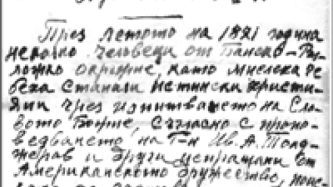 През летото на 1881 година
неколко человеци от Банско-Раз-
ложко окръжие, като мислеха че
беха станали истински христи-
яни чрез изпитването на Сло-
вото Божие, съгласно с пропо-
ведването на Г-н Ив. А. Тонд-
жеров и други изпращани от
Американското дружество,